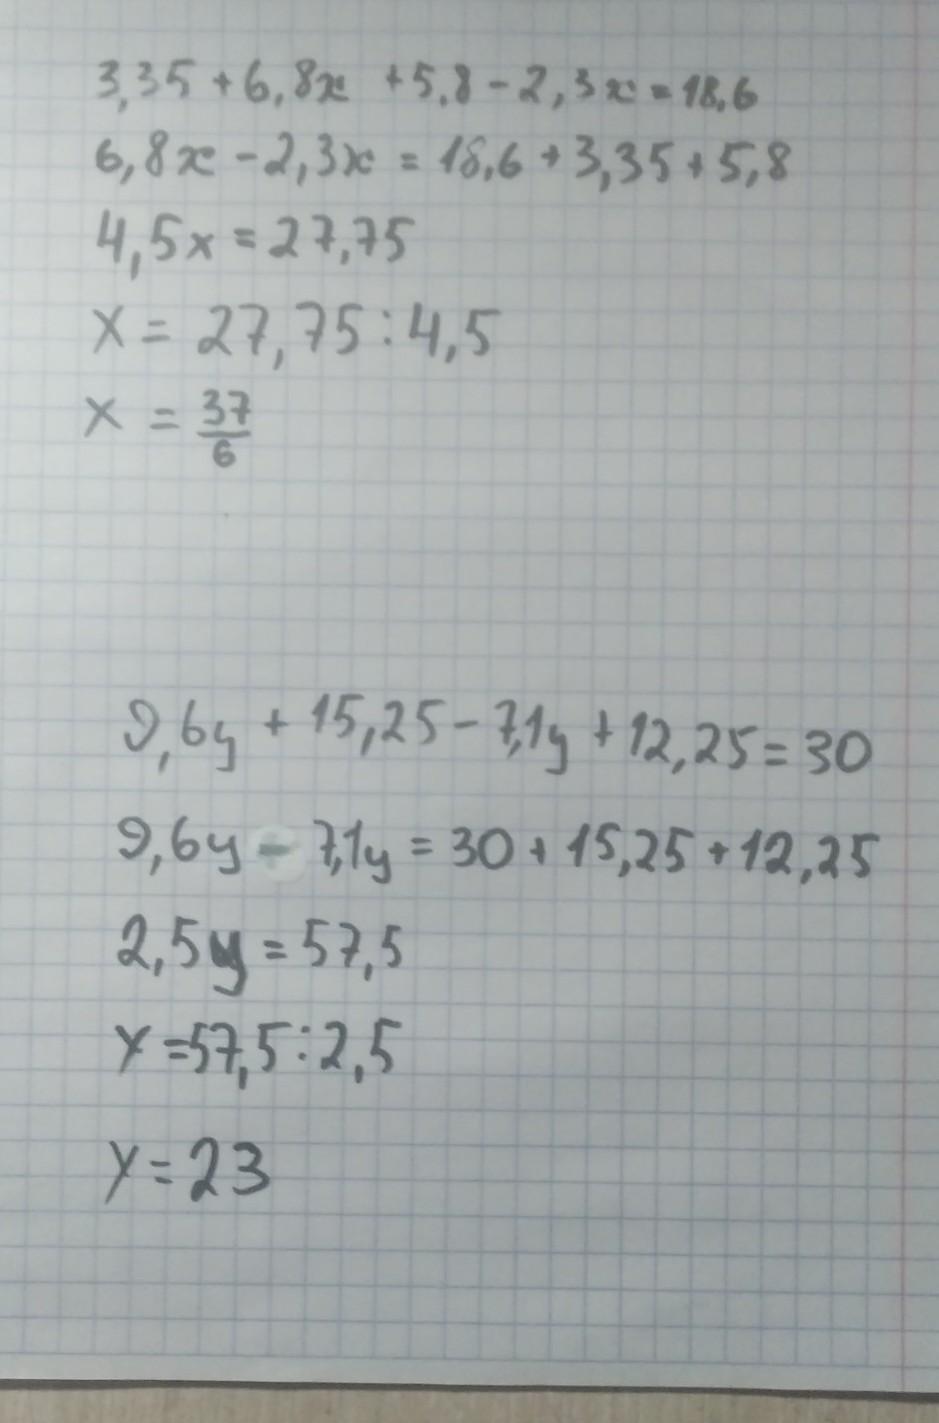 3,35 + 6,8x + 5,8 - 2,3x = 18,6
6,8x - 2,3x = 18,6 + 3,35 + 5,8
4,5x = 27,75
x = 27,75 : 4,5
x = 37/6
9,6y + 15,25 - 7,1y + 12,25 = 30
9,6y - 7,1y = 30 + 15,25 + 12,25
2,5y = 57,5
y = 57,5 : 2,5
y = 23